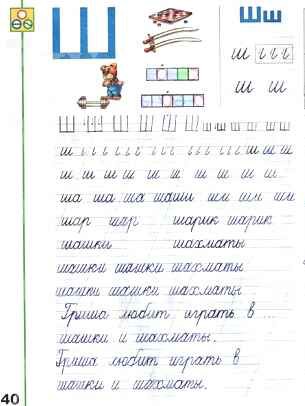 Ш
Шш
ш
ш ш
Ш Ш Ш Ш Ш Ш ш ш ш ш
ш ш ш ш
ш ш ш ш ш ш ш ш ш ш
ша ша ша шаши ши ши ши
шар шар шарик шарик
шашки шахматы
шашки шашки шахматы
шашки шашки шахматы
Гриша любит играть в ...
шашки и шахматы.
Гриша любит играть в
шашки и шахматы.
40